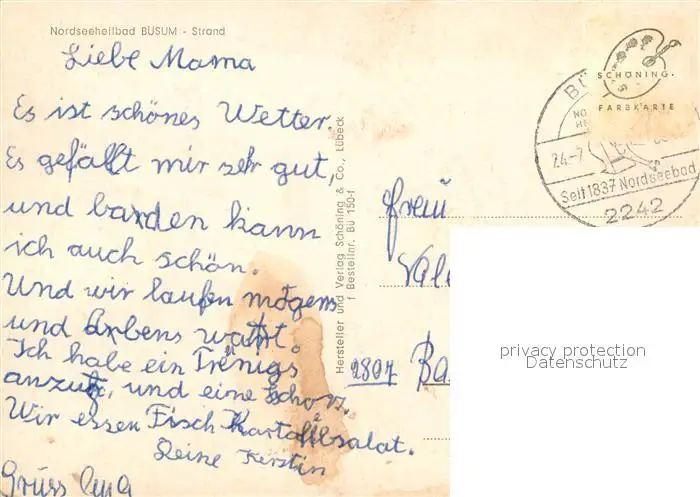 Nordseeheilbad BÜSUM - Strand
Liebe Mama
Es ist schönes Wetter.
Es gefällt mir sehr gut,
und barden kann
ich auch schön.
Und wir laufen mogens
und arbens watt.
Ich habe ein Trenigs
anzug, und eine schorz.
Wir essen Fisch Kartoffelsalat.
Deine Kerstin
Gruss
Hersteller und Verlag Schöning & Co., Lübeck
f Bestellnr. Bü 150-f
SCHÖNING.
FARBKARTE
24.-7
Seit 1837 Nordseebad
2242
Frau
Vale
2807 Ba
privacy protection
Datenschutz